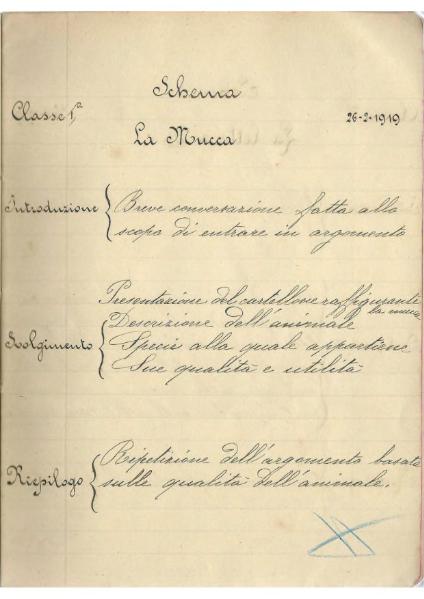 Schema
Classe 1ª
26-2-1919
La Mucca
Introduzione
Breve conversazione fatta allo
scopo di entrare in argomento
Svolgimento
Presentazione del cartellone raffigurante
la mucca
Descrizione dell'animale
Specie alla quale appartiene
Sue qualità e utilità
Riepilogo
Ripetizione dell'argomento basata
sulle qualità dell'animale.